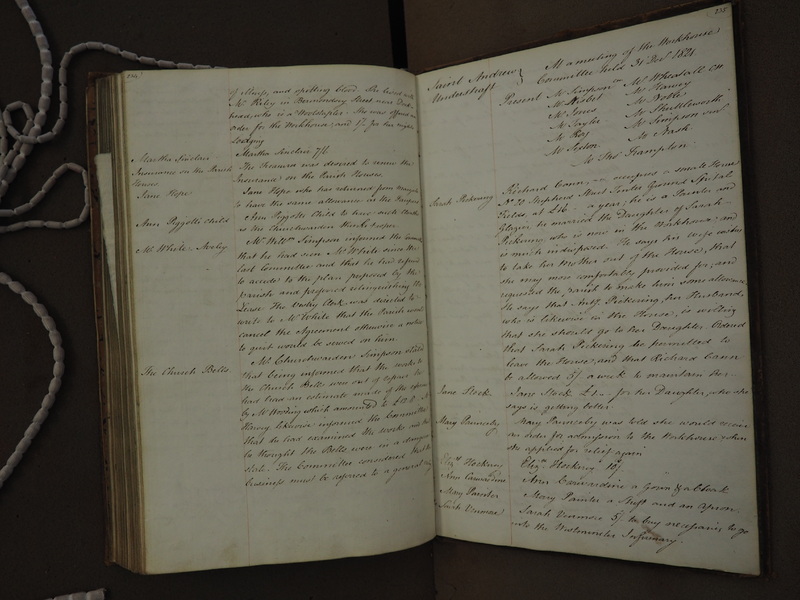 234
of illness, and spitting blood. She lived with
Mr Roley in Street near
who is a She was offered an
order for the Workhouse; and 1/- for her nights
Lodging
Martha Sinclair
Martha Sinclair 7/6
Insurance on the Parish
Houses
The Treasurer was desired to renew the
Insurance on the Parish Houses.
Jane Hope
Jane Hope who has returned from
to have the same allowance in the
Ann Piggotts Child
Ann Piggotts Child to have such Cloaths
as the Churchwarden thinks proper
Mr White
Mr Willm Simpson informed the Committee
that he had seen Mr White since the
last Committee and that he had refused
to accede to the plan proposed by the
parish and proposed relinquishing the
Lease. The Vestry Clerk was directed to
write to Mr White that the Parish would
cancel the Agreement otherwise a notice
to quit would be served on him.
The Church Bells
Mr Churchwarden Simpson stated
that being informed that the works to
the Church Bells were out of repair he
had had an estimate made of the expence
by Mr which amounted to
Harvey likewise informed the Committee
that he had examined the works and that
he thought the Bells were in a dangerous
state. The Committee considered that the
business must be referred to a general
235
Saint Andrew
Undershaft
At a meeting of the Workhouse
Committee held 31 Decr 1821.
Present Mr Simpson Mr Wheatall
Mr Nisbet Mr Harvey
Mr Jones Mr
Mr Sayles Mr Shuttleworth
Mr Ray Mr Simpson
Mr Mr Nash
Mr Thos Frampton
Sarah Pickering
Richard Cann, occupies a small House
No 20 Shepherd Street Tenter Ground Spital
Fields, at £16 a year; he is a Painter and
Glazier he married the Daughter of Sarah
Pickering who is now in the Workhouse and
is much indisposed. He says his wife wishes
to take her Mother out of the House, that
she may more comfortably provided for; and
requested the parish to make him some allowance
He says that Pickering, her Husband,
who is likewise in the House, is willing
that she should go to her Daughter. Ordered
that Sarah Pickering be permitted to
leave the House, and that Richard Cann
be allowed 5/ a week to maintain her.
Jane Stock
Jane Stock £1 for her Daughter, who she
says is getting better
Mary Pauncby
Mary Pauncby was told she would receive
an order for admission to the Workhouse, when
she applied for relief again
Elizth Hockney
Elizth Hockney 10/
Ann Carwardine
Ann Carwardine a Gown & a Cloak
Mary Painter
Mary Painter a Shift and an Apron
Sarah Venmore
Sarah Venmore 5/ to buy necessaries to go
into the Westminster Infirmary.